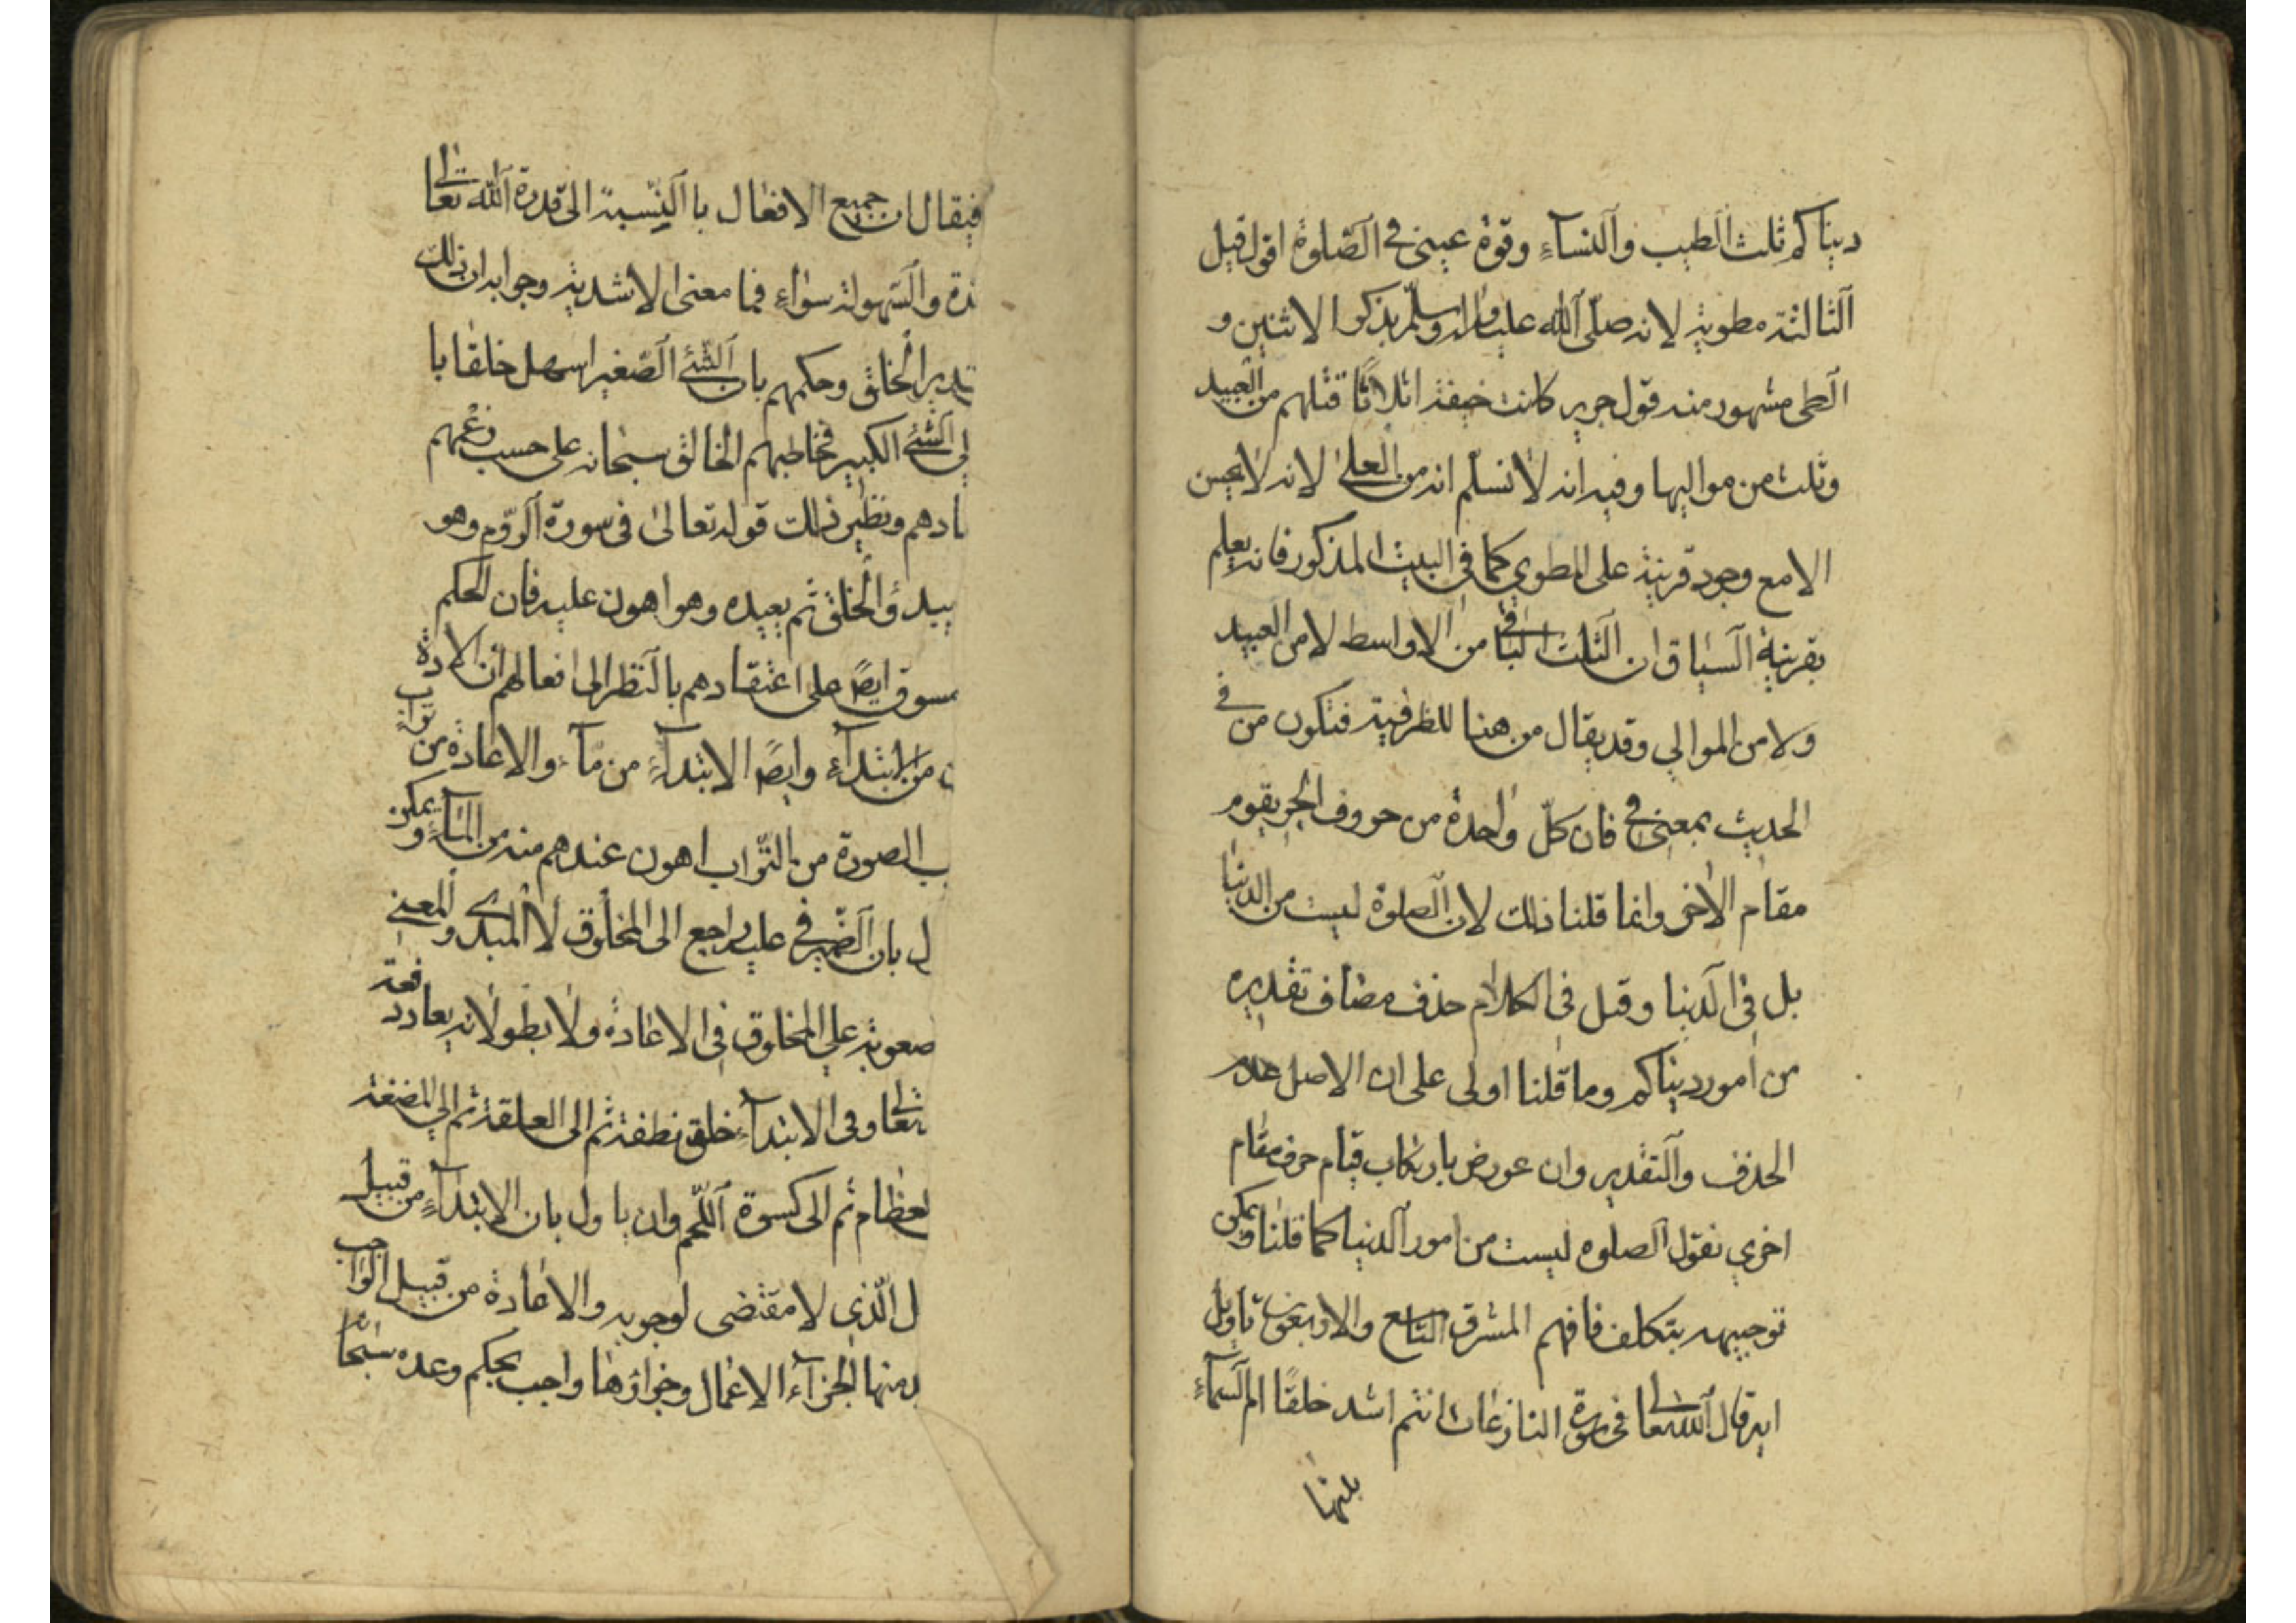 ديناكم ثلث الطيب والنسآء وقوة عيني في الصلوة اقول قيل
الثالثة مطوية لانه صلّى الله عليه واله وسلم يذكر الاثنين و
الطى مشهور منه قول جرير كانت حنيفة اثلاثًا فثلثهم من العبيد
وثلث من مواليها وفيه انه لا نسلم انه من الطى لانه لا يحسن
الا مع وجود قرينة على المطوي كما في البيت المذكور فانه يعلم
بقرينة السياق ان الثلث الباقي من الاواسط لا من العبيد
ولا من الموالي وقد يقال من هنا للظرفية فتكون من في
الحديث بمعنى في فان كلّ واحدة من حروف الجر يقوم
مقام الاخرى وانما قلنا ذلك لان الصلوة ليست من الدنيا
بل في الدنيا وقيل في الكلام حذف مضاف تقديره
من امور ديناكم وما قلنا اولى على ان الاصل عدم
الحذف والتقدير وان عورض بارتكاب قيام حرف مقام
اخرى نقول الصلوه ليست من امور الدنيا كما قلنا ويمكن
توجيهه بتكلف فافهم المشرق التاسع والاربعون تاويل
اية قال الله تعالى في سورة النازعات ءانتم اشد خلقًا ام السمآء
بنيها
فيقال ان جميع الافعال باالنّسبة الى قدرة الله تعالى
دة والسهولة سواء فما معنى الاشدية وجوابه ان ذلك
تدير الخلق وحكمهم بان الشئ الصغير اسهل خلقا با
لي الشئ الكبير فخاطبهم الخالق سبحانه على حسب زعمهم
ادهم ونظير ذلك قوله تعالى فى سورة الروم وهو
يبدؤ الخلق ثم يعيده وهو اهون عليه فان الحكم
مسوق ايضً على اعتقادهم بالنظر الى افعالهم ان الاعادة
من ابتدآء وايضً الابتدآء من مآء والاعادة من تراب
ب الصورة من التراب اهون عندهم منه من المآء ويمكن
ل بان الضمير في عليه راجع الى المخلوق لا المبدى والمعنى
صعوبة على المخلوق في الاعادة ولا بطو لانه يعاد دفعة
تعالى وفى الابتدآء خلق نطفة ثم الى العلقة ثم الي المضغة
لعظام ثم الى كسوة اللحم وان ياول بان الابتدآء من قبيل
ل الذي لا مقتضى لوجوبه والاعادة من قبيل الواجب
د منها الجزآء الاعمال وجزاؤها واجب بحكم وعده سبحانه